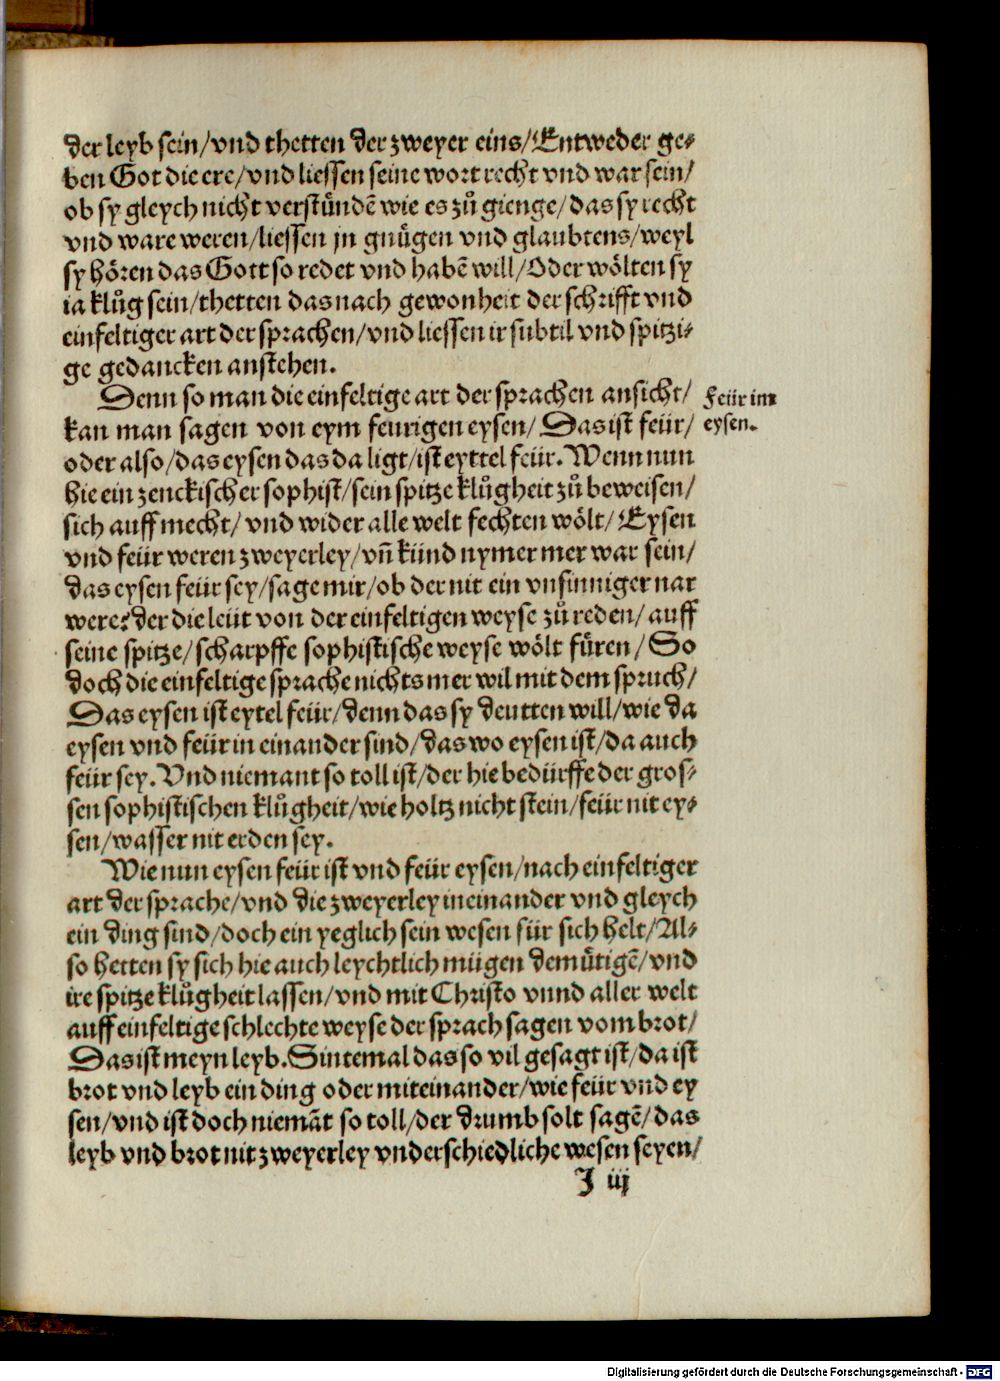 der leyb sein/vnd thetten der zweyer eins/Entweder ge-
ben Got die ere/vnd liessen seine wort recht vnd war sein/
ob sy gleych nicht verstündẽ wie es zů gienge/das sy recht
vnd ware weren/liessen jn gnůgen vnd glaubtens/weyl
sy hören das Gott so redet vnd habẽ will/Oder wölten sy
ia klůg sein/thetten das nach gewonheit der schrifft vnd
einfeltiger art der sprachen/vnd liessen ir subtil vnd spitzi-
ge gedancken anstehen.
Denn so man die einfeltige art der sprachen ansicht/
Feür im
kan man sagen von eym feurigen eysen/Das ist feür/
eysen.
oder also/das eysen das da ligt/ist eyttel feür. Wenn nun
hie ein zenckischer sophist/sein spitze klůgheit zů beweisen/
sich auff mecht/vnd wider alle welt fechten wölt/Eysen
vnd feür weren zweyerley/vñ künd nymer mer war sein/
das eysen feür sey/sage mir/ob der nit ein vnsinniger nar
were? der die leüt von der einfeltigen weyse zů reden/auff
seine spitze/scharpffe sophistische weyse wölt füren/So
doch die einfeltige sprache nichts mer wil mit dem spruch/
Das eysen ist eytel feür/denn das sy deutten will/wie da
eysen vnd feür in einander sind/das wo eysen ist/da auch
feür sey. Vnd niemant so toll ist/der hie bedürffe der gros-
sen sophistischen klůgheit/wie holtz nicht stein/feür nit ey-
sen/wasser nit erden sey.
Wie nun eysen feür ist vnd feür eysen/nach einfeltiger
art der sprache/vnd die zweyerley ineinander vnd gleych
ein ding sind/doch ein yeglich sein wesen für sich helt/Al-
so hetten sy sich hie auch leychtlich mügen demůtigẽ/vnd
ire spitze klůgheit lassen/vnd mit Christo vnnd aller welt
auff einfeltige schlechte weyse der sprach sagen vom brot/
Das ist meyn leyb. Sintemal das so vil gesagt ist/da ist
brot vnd leyb ein ding oder miteinander/wie feür vnd ey
sen/vnd ist doch niemãt so toll/der drumb solt sagẽ/das
leyb vnd brot nit zweyerley vnderschiedliche wesen seyen/
J iij
Digitalisierung gefördert durch die Deutsche Forschungsgemeinschaft - DFG